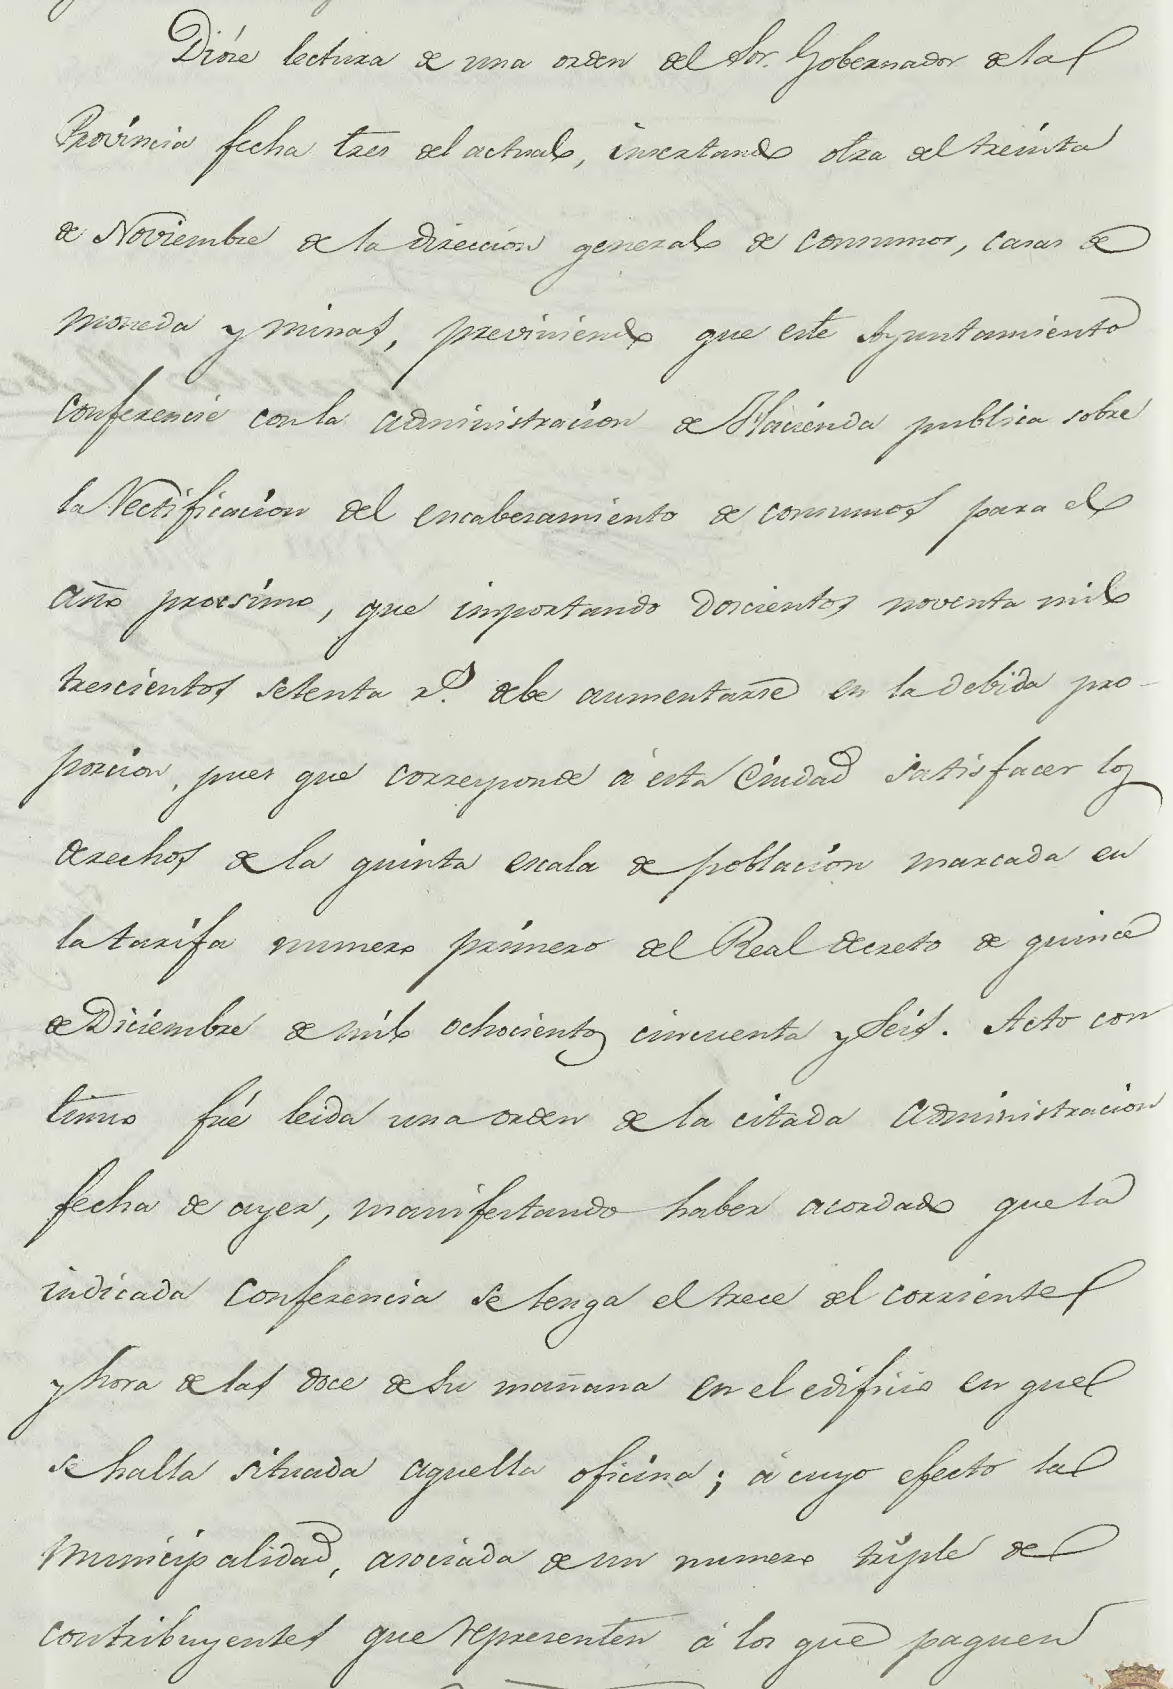 Dióse lectura de una orden del Sor. Gobernador de la
Provincia fecha tres del actual, insertando otra del treinta
de Noviembre de la direccion general de consumos, casas de
moneda y minas, previniendo que este Ayuntamiento
conferencie con la administracion de Hacienda publica sobre
la rectificacion del encabesamiento de consumos para el
año procsimo, que importando doscientos noventa mil
trescientos setenta rs. debe aumentarse en la debida pro-
porcion, pues que corresponde á esta Ciudad satisfacer los
derechos de la quinta escala de poblacion marcada en
la tarifa numero primero del Real decreto de quince
de Diciembre de mil ochocientos cincuenta y seis. Acto con
tinuo fué leida una orden de la citada Administracion
fecha de ayer, manifestando haber acordado que la
indicada conferencia se tenga el trece del corriente
y hora de las doce de su mañana en el edificio en que
se halla situada aquella oficina; á cuyo efecto la
Municipalidad, asociada de un numero triple de
contribuyentes que representen á los que paguen